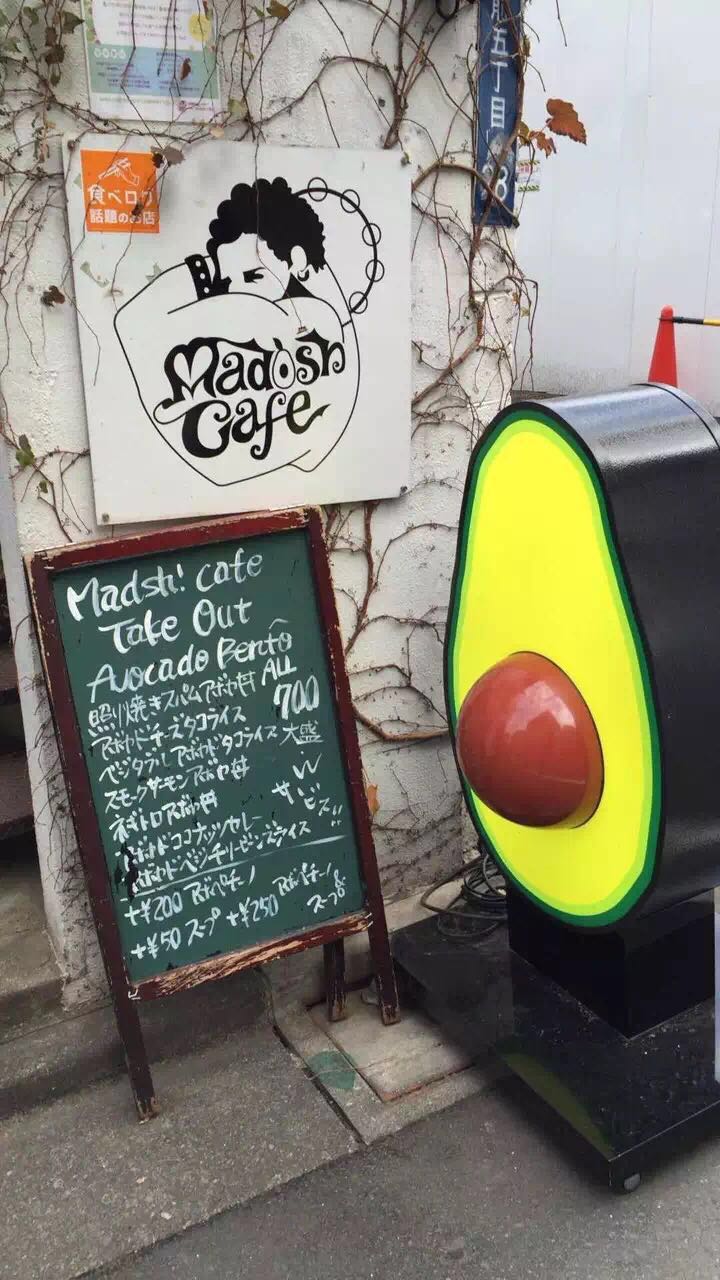 食べログ
話題のお店
前五丁目
28
Madosh
Cafe
Madsh! cafe
Take Out
Avocado Bentô
照り焼きスパムアボカ丼 ALL
700
アボカドチーズタコライス
ベジタブルアボカドタコライス 大盛
スモークサーモンアボカ丼
ネギトロアボカ丼
サービス!!
アボカドココナッツカレー
アボカドベジチリビーンズライス
+¥200 アボパチーノ
+¥50 スープ +¥250 アボパチーノ&
スープ